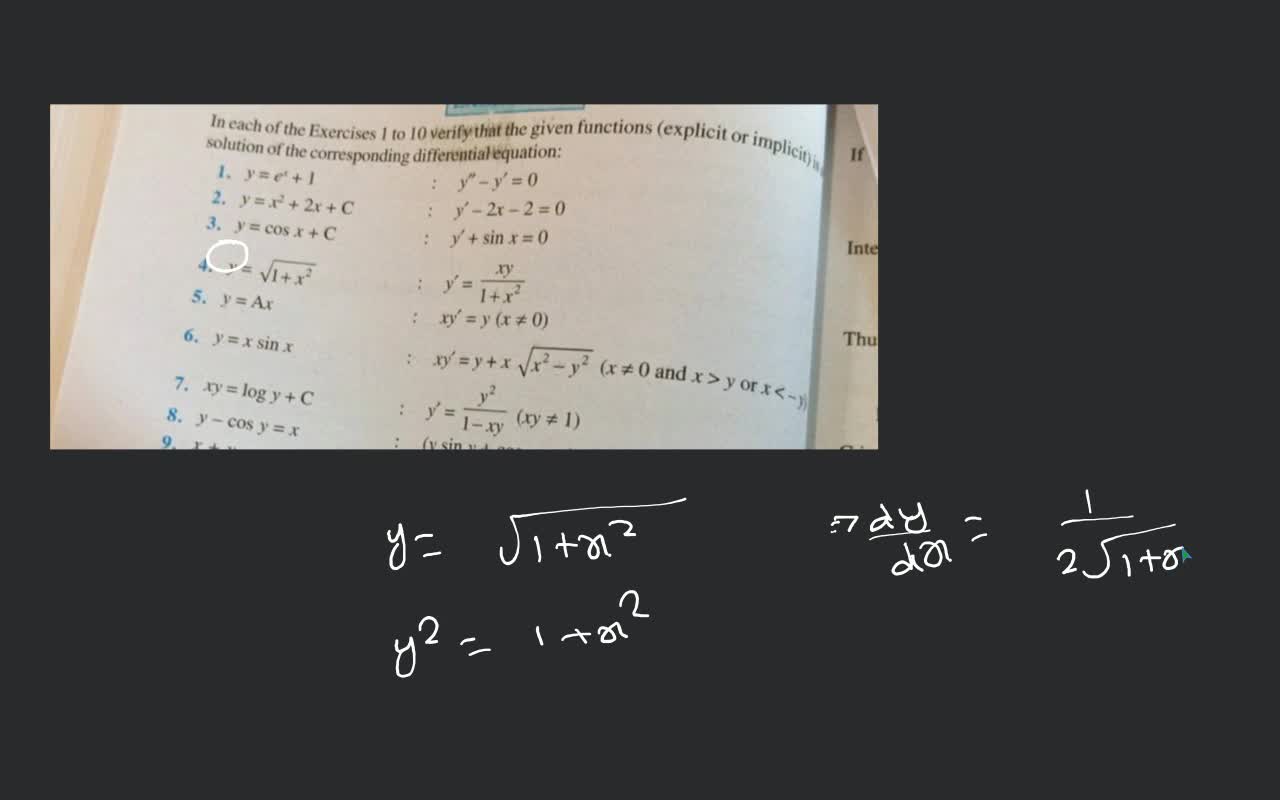 In each of the Exercises 1 to 10 verify that the given functions (explicit or implicit) is
solution of the corresponding differential equation:
1. y = eˣ + 1 : y″ – y′ = 0
2. y = x² + 2x + C : y′ – 2x – 2 = 0
3. y = cos x + C : y′ + sin x = 0
4. y = √(1+x²) : y′ = xy/(1+x²)
5. y = Ax : xy′ = y (x ≠ 0)
6. y = x sin x : xy′ = y + x √(x² – y²) (x ≠ 0 and x > y or x < – y)
7. xy = log y + C : y′ = y²/(1–xy) (xy ≠ 1)
8. y – cos y = x : (y sin y +
9. x +
If
Inte
Thu
y = √(1+x²)
y² = 1+x²
⇒ dy/dx = 1/(2√(1+x